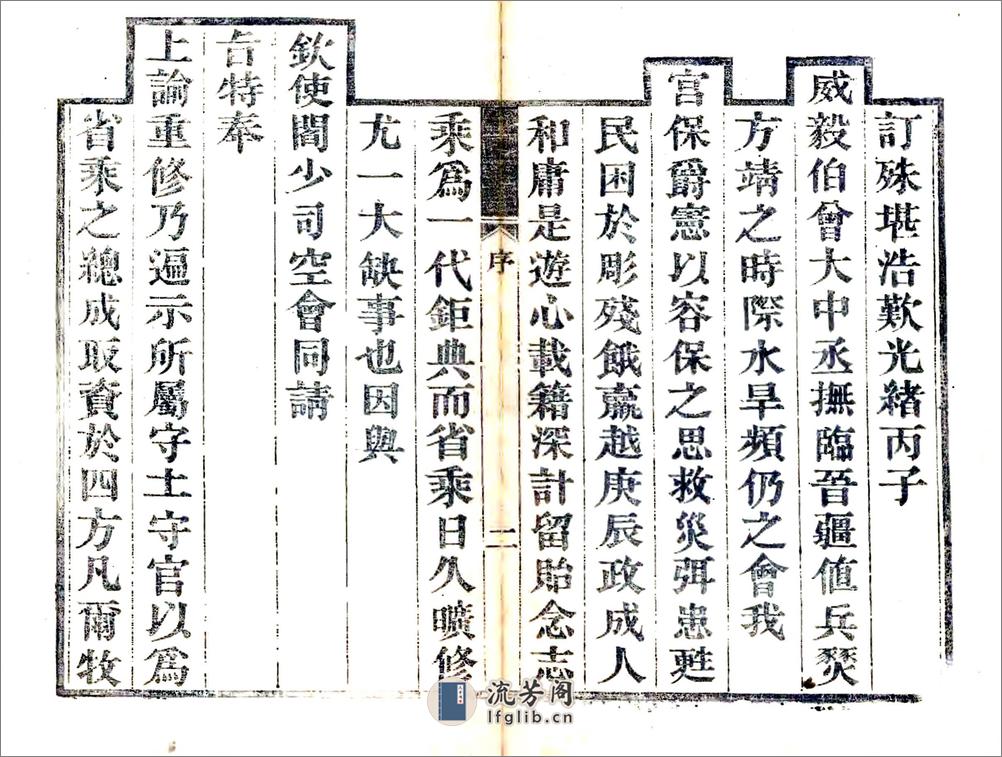 訂殊堪浩歎光緒丙子
威毅伯曾大中丞撫臨晉疆值兵燹
方靖之時際水旱頻仍之會我
宮保爵憲以容保之思救災弭患甦
民困於彫殘餓羸越庚辰政成人
和庸是遊心載籍深計留貽念志
序
二
乘爲一代鉅典而省乘日久曠修
尤一大缺事也因與
欽使閻少司空會同請
旨特奉
上諭重修乃遍示所屬守土守官以爲
省乘之總成取資於四方凡爾牧
流芳阁
lfglib.cn